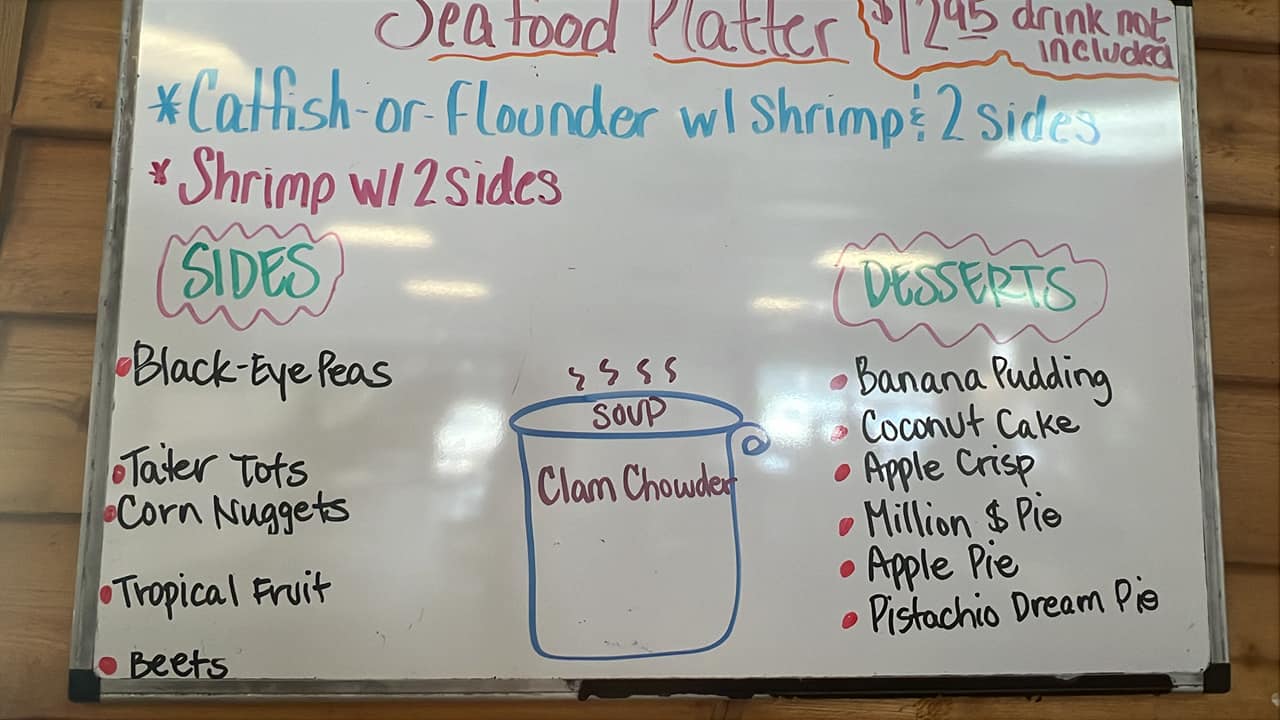 Seafood Platter $12.95 drink not
included
*Catfish-or-Flounder w/ Shrimp & 2 sides
*Shrimp w/ 2 sides
SIDES
• Black-Eye Peas
• Tater Tots
• Corn Nuggets
• Tropical Fruit
• Beets
SOUP
Clam Chowder
DESSERTS
• Banana Pudding
• Coconut Cake
• Apple Crisp
• Million $ Pie
• Apple Pie
• Pistachio Dream Pie